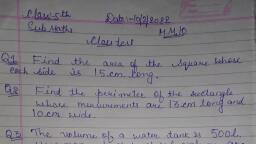 Class-5th Date:-10/2/2022
Sub Maths M.M:10
Class test
Q1 Find the area of the square whose
each side is 15cm long.
Q2 Find the perimeter of the rectangle
whose measurements are 13cm long and
10cm wide.
Q3 The volume of a water tank is 500l.